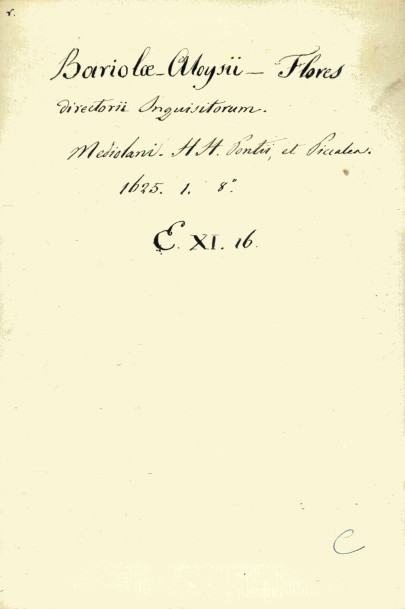 r.
Bariolæ-Aloysii — Flores
directorii Inquisitorum.
Mediolani. H H. Pontii, et Piccalea.
1625. 1. 8°.
E. XI. 16.
C